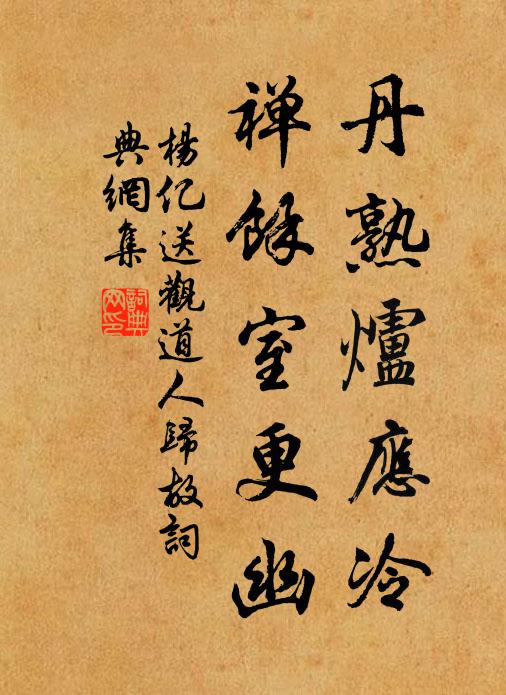 丹熟爐應冷
禪餘室更幽
楊亿送觀道人歸故詞
典網集
詞典
网印